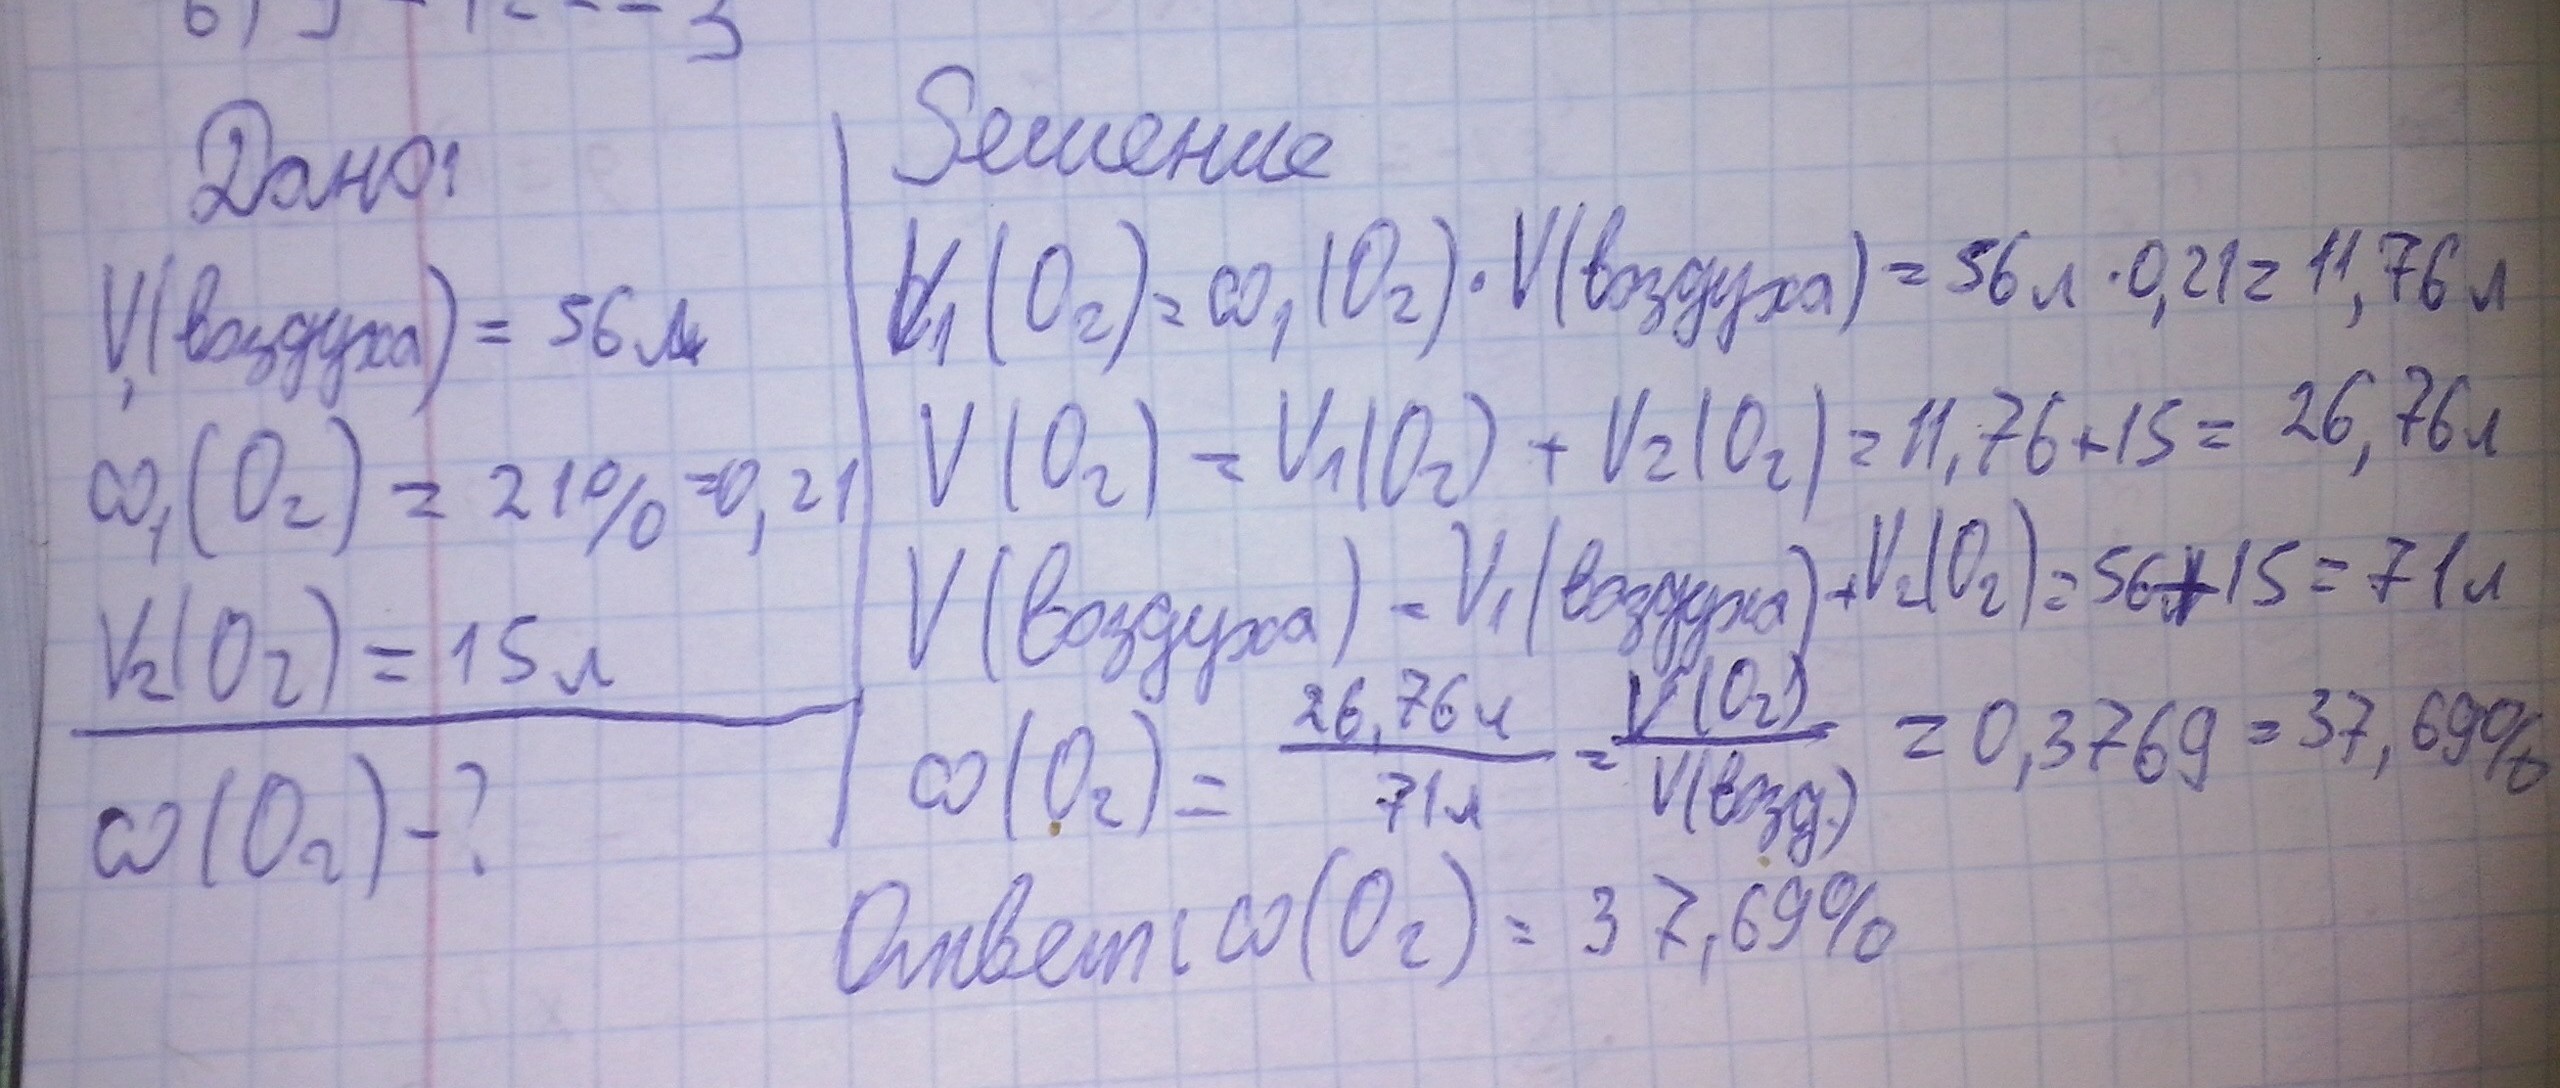 Дано:
V₁(воздуха) = 56 л
ω₁(O₂) = 21% = 0,21
V₂(O₂) = 15 л
ω(O₂) - ?
Решение
V₁(O₂) = ω₁(O₂) · V(воздуха) = 56 л · 0,21 = 11,76 л
V(O₂) = V₁(O₂) + V₂(O₂) = 11,76 + 15 = 26,76 л
V(воздуха) = V₁(воздуха) + V₂(O₂) = 56 + 15 = 71 л
ω(O₂) = 26,76 л / 71 л = V(O₂) / V(возд.) = 0,3769 = 37,69%
Ответ: ω(O₂) = 37,69%